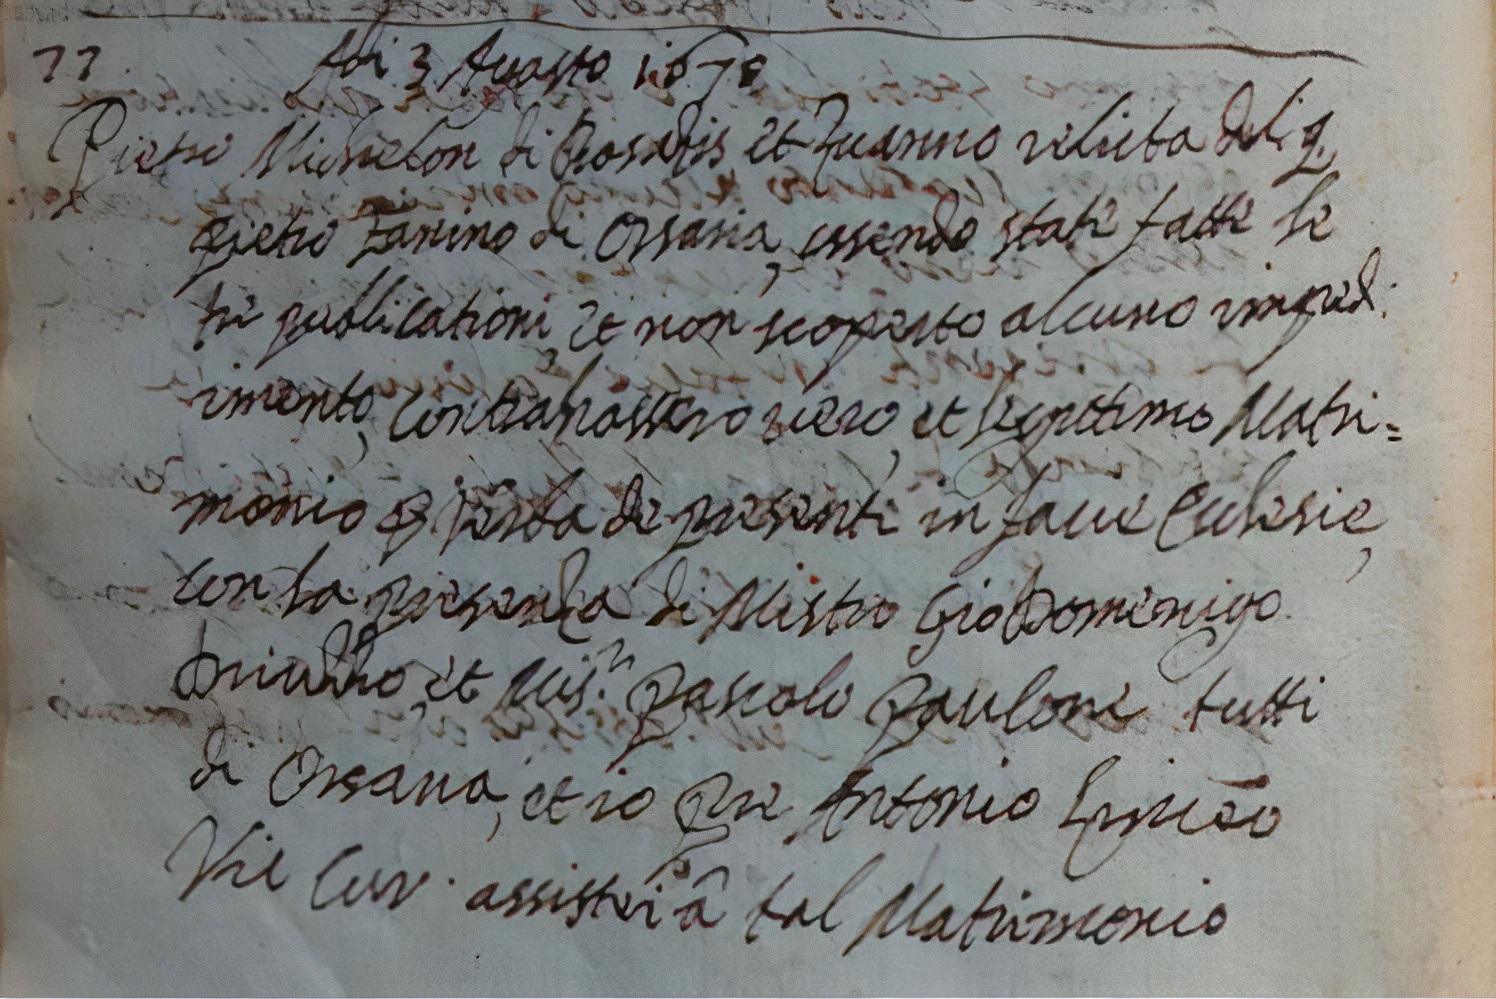 77. Adi 3 Agosto 1670
Pietro Michelon di Rosazis et Zuanna relicta del q.
Pietro Zanino di Orsaria, essendo state fatte le
tre publicationi et non scoperto alcuno imped.
imento, contrahassero vero, et legitimo Matri=
monio p verba de presenti in facie Eclesie,
con la presenza di Mistro Gio Domenigo
et Mis.r Pascolo Paulone tutti
di Orsaria, et io Pre Antonio
Vic Cur. assistei â tal Matrimonio